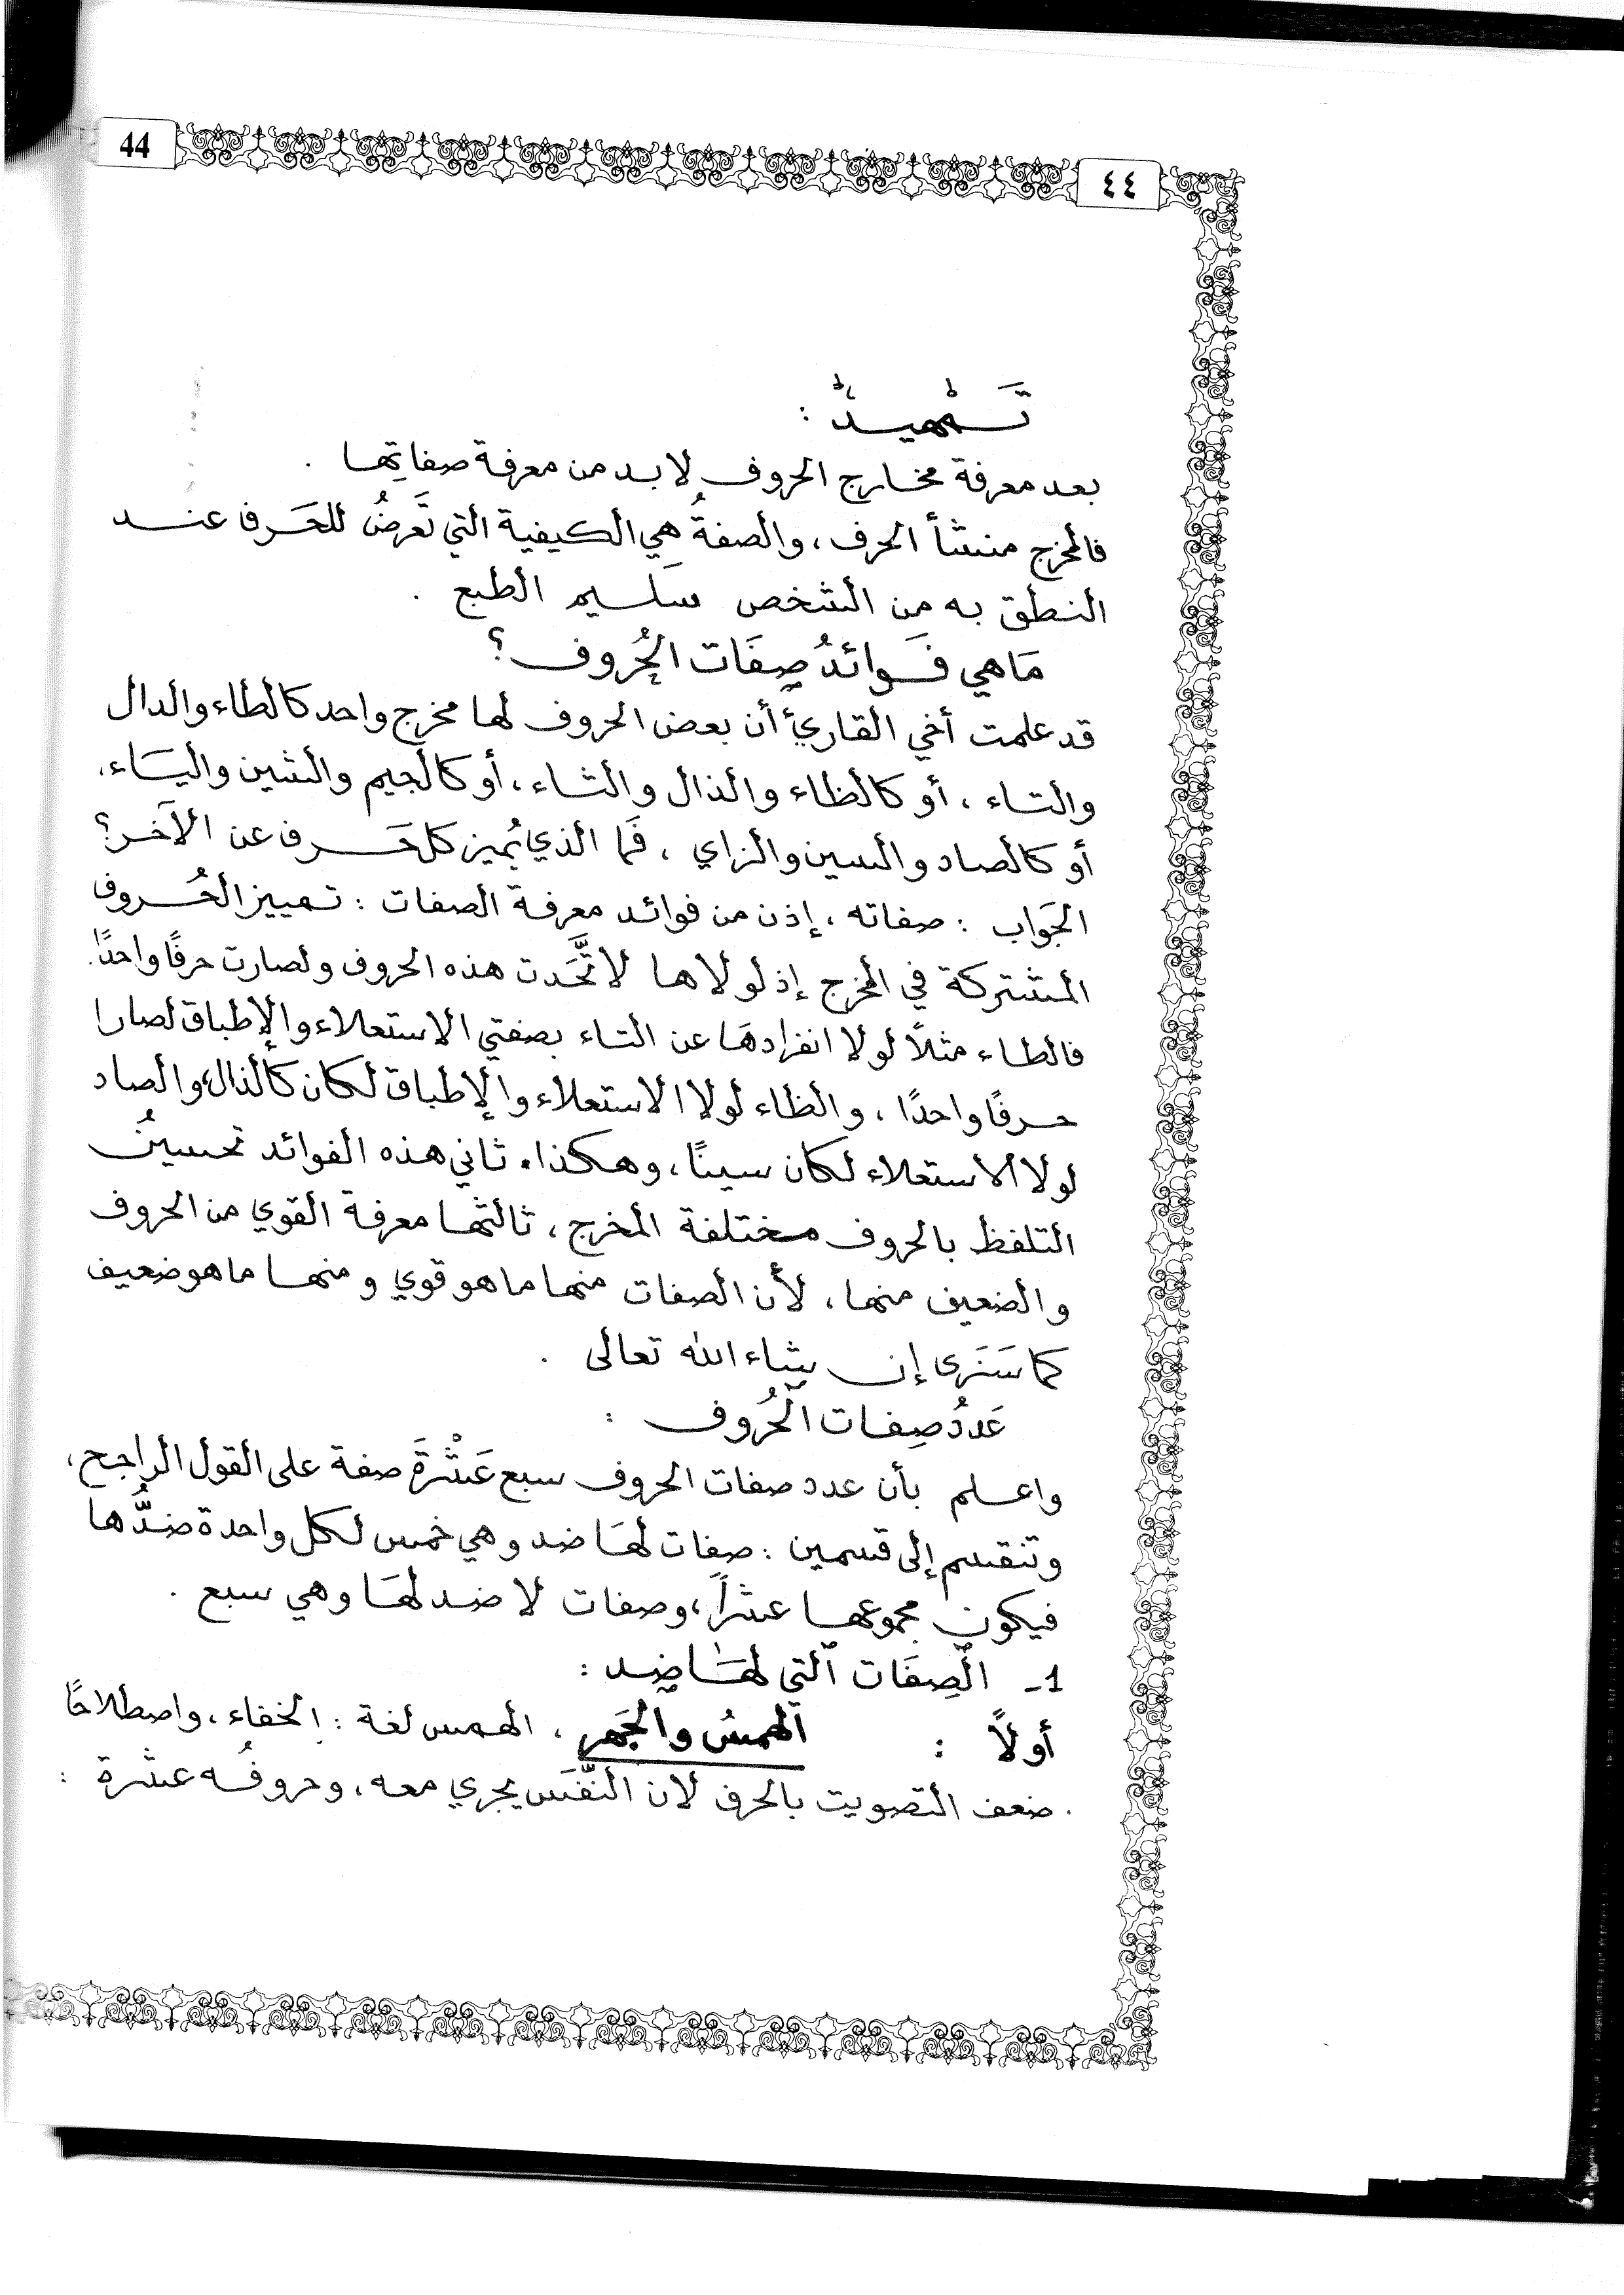 44
٤٤
تَمْهِيدٌ :
بعد معرفة مخارج الحروف لابد من معرفة صفاتها .
فالمخرج منشأ الحرف، والصفةُ هي الكيفية التي تَعرضُ للحَرف عند
النطق به من الشخص سَليم الطبع .
مَاهي فَوائدُ صِفَات الحُروف ؟
قد علمت أخي القارئ أن بعض الحروف لها مخرج واحد كالطاء والدال
والتاء ، أو كالظاء والذال والثاء ، أو كالجيم والشين واليَاء ،
أو كالصاد والسين والزاي ، فَما الذي يُميز كل حَرف عن الآخَر ؟
الجَواب : صفاته ، إذن من فوائد معرفة الصفات : تمييز الحُروف
المشتركة في المخرج إذ لولاها لاتَّحَدت هذه الحروف ولصارت حرفًا واحدًا .
فالطاء مثلاً لولا انفرادهَا عن التاء بصفتي الاستعلاء والإطباق لصارا
حرفًا واحدًا ، والظاء لولا الاستعلاء والإطباق لكان كالذال، والصاد
لولا الاستعلاء لكان سينًا ، وهكذا . ثاني هذه الفوائد تحسينُ
التلفظ بالحروف مختلفة المخرج ، ثالثها معرفة القوي من الحروف
والضعيف منها ، لأن الصفات منها ماهو قوي ومنها ماهو ضعيف
كما سَنَرى إن شاء الله تعالى .
عَددُ صِفات الحُروف :
واعلم بأن عدد صفات الحروف سبع عَشْرَةَ صفة على القول الراجح ،
وتنقسم إلى قسمين : صفات لهَا ضد وهي خمس لكل واحدة ضدُّها
فيكون مجموعها عشراً ، وصفات لا ضد لهَا وهي سبع .
1- الصِفَات التي لهَا ضِد :
أولاً : الهمسُ والجَهر ، الهمس لغة : الخفاء ، واصطلاحًا
. ضعف التصويت بالحرف لان النَّفَس يجري معه ، وحروفُه عشرة :